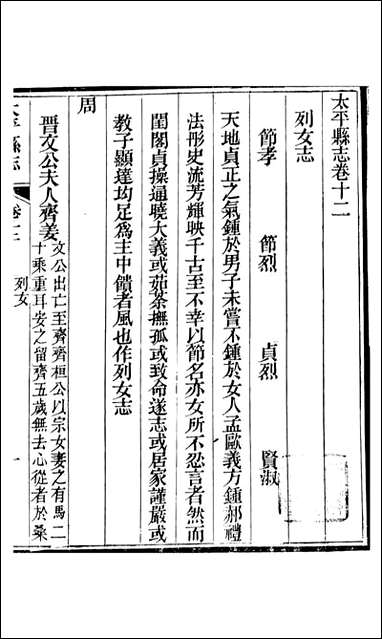 太平縣志卷十二
列女志
節孝 節烈 貞烈 賢淑
天地貞正之氣鍾於男子未嘗不鍾於女人孟歐義方鍾郝禮
法彤史流芳輝映千古至不幸以節名亦女所不忍言者然而
閨閣貞操通曉大義或茹荼撫孤或致命遂志或居家謹嚴或
教子顯達均足爲主中饋者風也作列女志
周
晋文公夫人齊姜
文公出亡至齊齊桓公以宗女妻之有馬二
十乘重耳安之留齊五歲無去心從者於桑
太平縣志
卷十二
列女
一